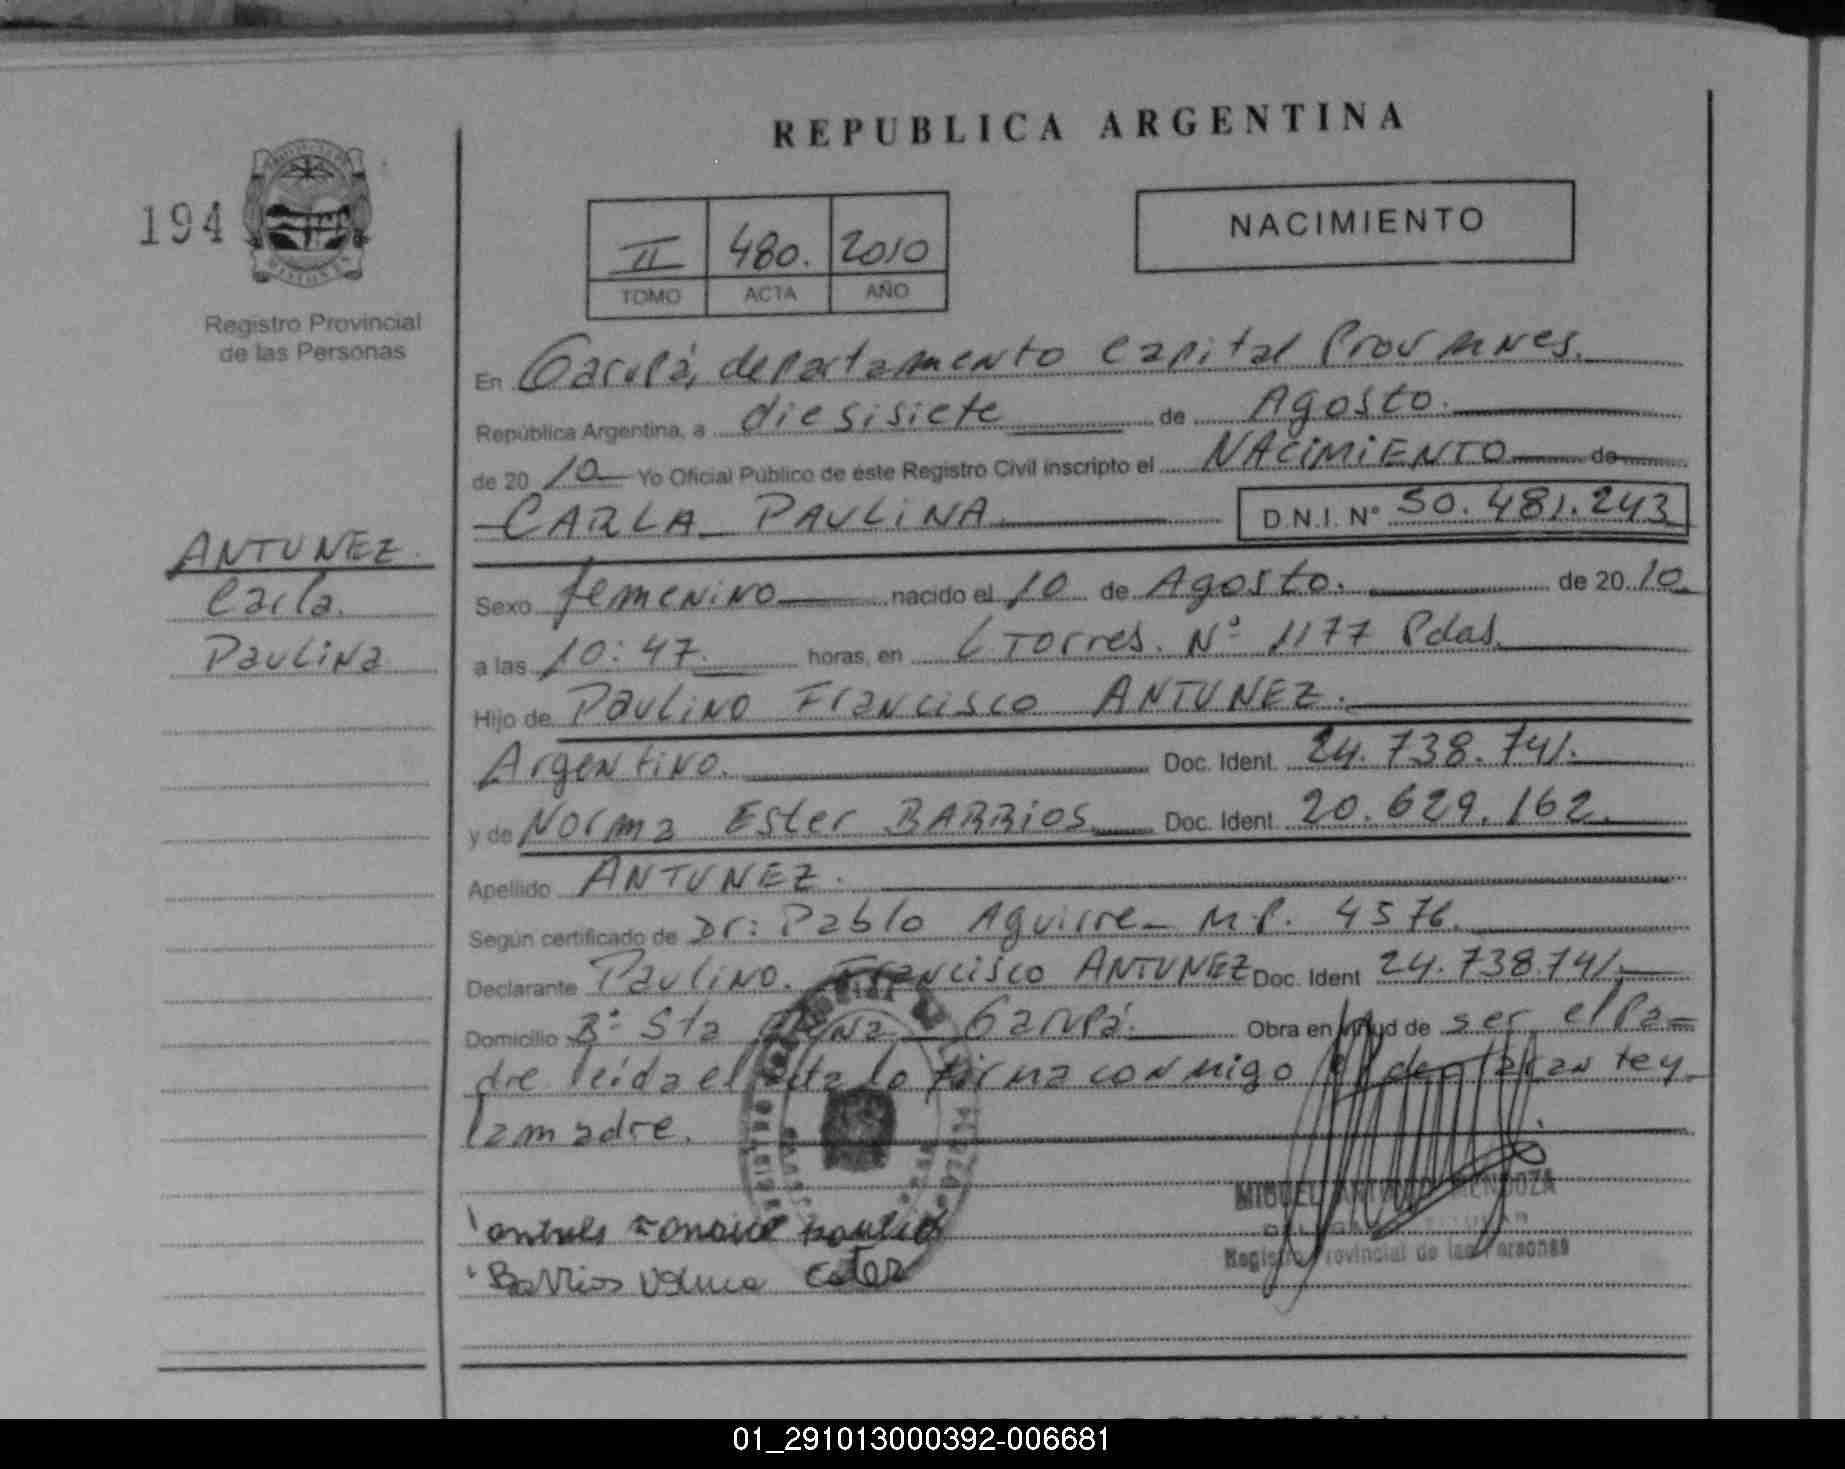 REPUBLICA ARGENTINA
194
NACIMIENTO
II 480. 2010
TOMO ACTA AÑO
Registro Provincial
de las Personas
En Garupá, departamento Capital Prov Mnes.
República Argentina, a diesisiete de Agosto.
de 20 10 Yo Oficial Público de éste Registro Civil inscripto el NACIMIENTO de
CARLA PAULINA D.N.I. N° 50.481.243
ANTUNEZ.
Carla.
Paulina
Sexo femenino nacido el 10 de Agosto. de 20 10
a las 10:47. horas, en L Torres. N° 1177 Pdas.
Hijo de Paulino Francisco ANTUNEZ.
Argentino. Doc. Ident. 24.738.741.
y de Norma Ester BARRIOS Doc. Ident. 20.629.162.
Apellido ANTUNEZ.
Según certificado de Dr: Pablo Aguirre M.P. 4576.
Declarante Paulino. Francisco ANTUNEZ Doc. Ident 24.738.741.
Domicilio B° Sta Garupá. Obra en virtud de ser el Pa-
dre leída el acta lo firma conmigo el declarante y
la madre.
MIGUEL ANTONIO MENDOZA
Registro Provincial de las Personas
Barrios Ester
01_291013000392-006681